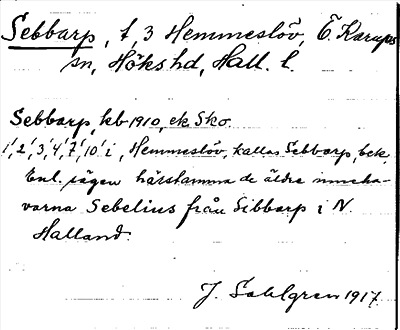 Sebbarp, t, 3 Hemmeslöv, Ö. Karups
sn, Höks hd, Hall. l.
Sebbarp, kb 1910, ek. Sko.
1/, 2/, 3/, 4/, 7/, 10/ i, Hemmeslöv, kallas Sebbarp, bek.
Enl. sägen härstamma de äldre inneha-
varna Sebelius från Sibbarp i N.
Halland.
J. Sahlgren 1917.